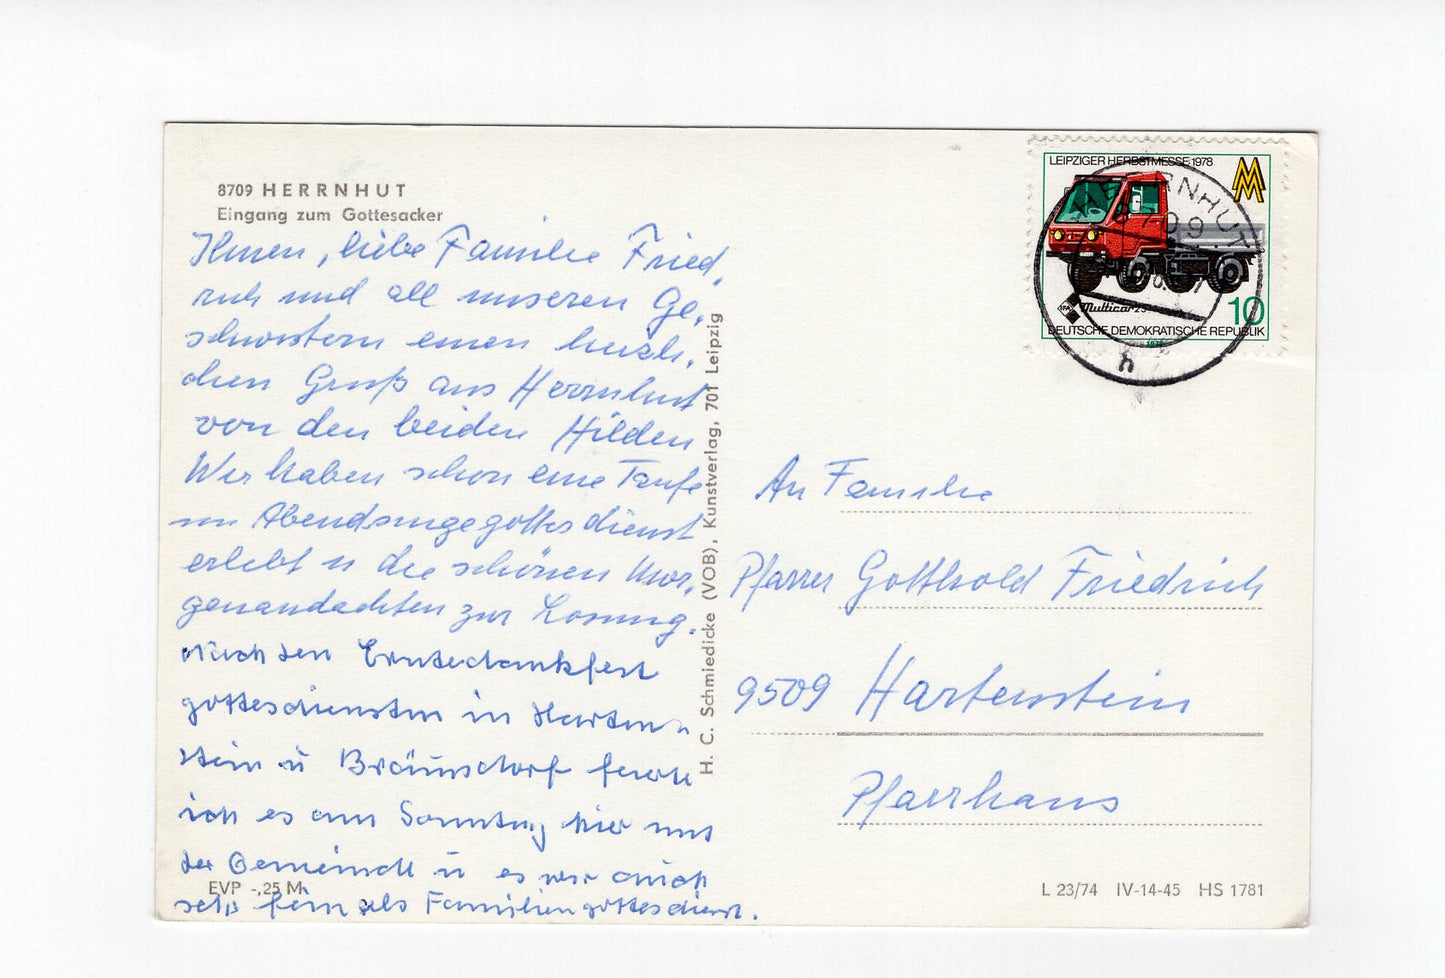 8709 HERRNHUT
Eingang zum Gottesacker
Ihnen, liebe Familie Fried,
rich und all unseren Ge,
schwistern einen herzli,
chen Gruß aus Herrnhut
von den beiden Hilden
Wir haben schon eine Taufe
im Abendsingegottesdienst
erlebt u die schönen Mor,
genandachten zur Losung.
Nach den Erntedankfest
gottesdiensten in Harten-
stein u Bräunsdorf feierte
ich es am Sonntag hier mit
der Gemeinde u es war auch
sehr fein als Familiengottesdienst.
EVP -,25 M
H. C. Schmiedicke (VOB), Kunstverlag, 701 Leipzig
LEIPZIGER HERBSTMESSE 1978
MM
Multicar 25
10
DEUTSCHE DEMOKRATISCHE REPUBLIK
1978
HERRNHUT
8709
h
An Familie
Pfarrer Gotthold Friedrich
9509 Hartenstein
Pfarrhaus
L 23/74 IV-14-45 HS 1781